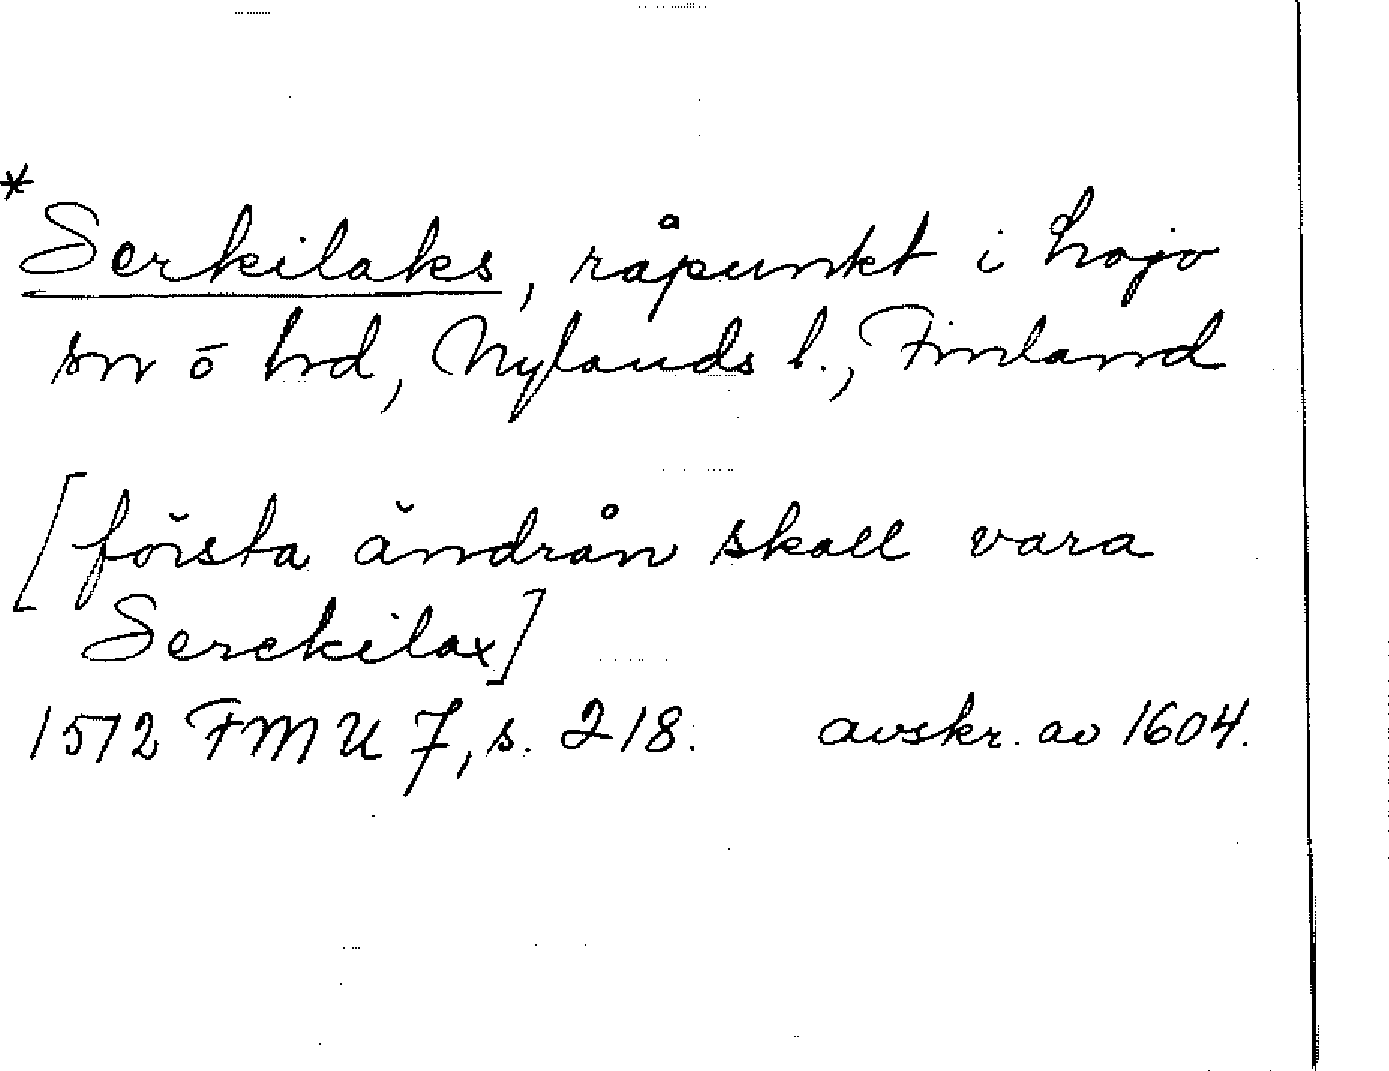 * Serkilaks, råpunkt i Lojo
sn o hrd, Nylands l., Finland
[första ändrån skall vara
Serckilax]
1572 FMU 7, s. 218. avskr. av 1604.